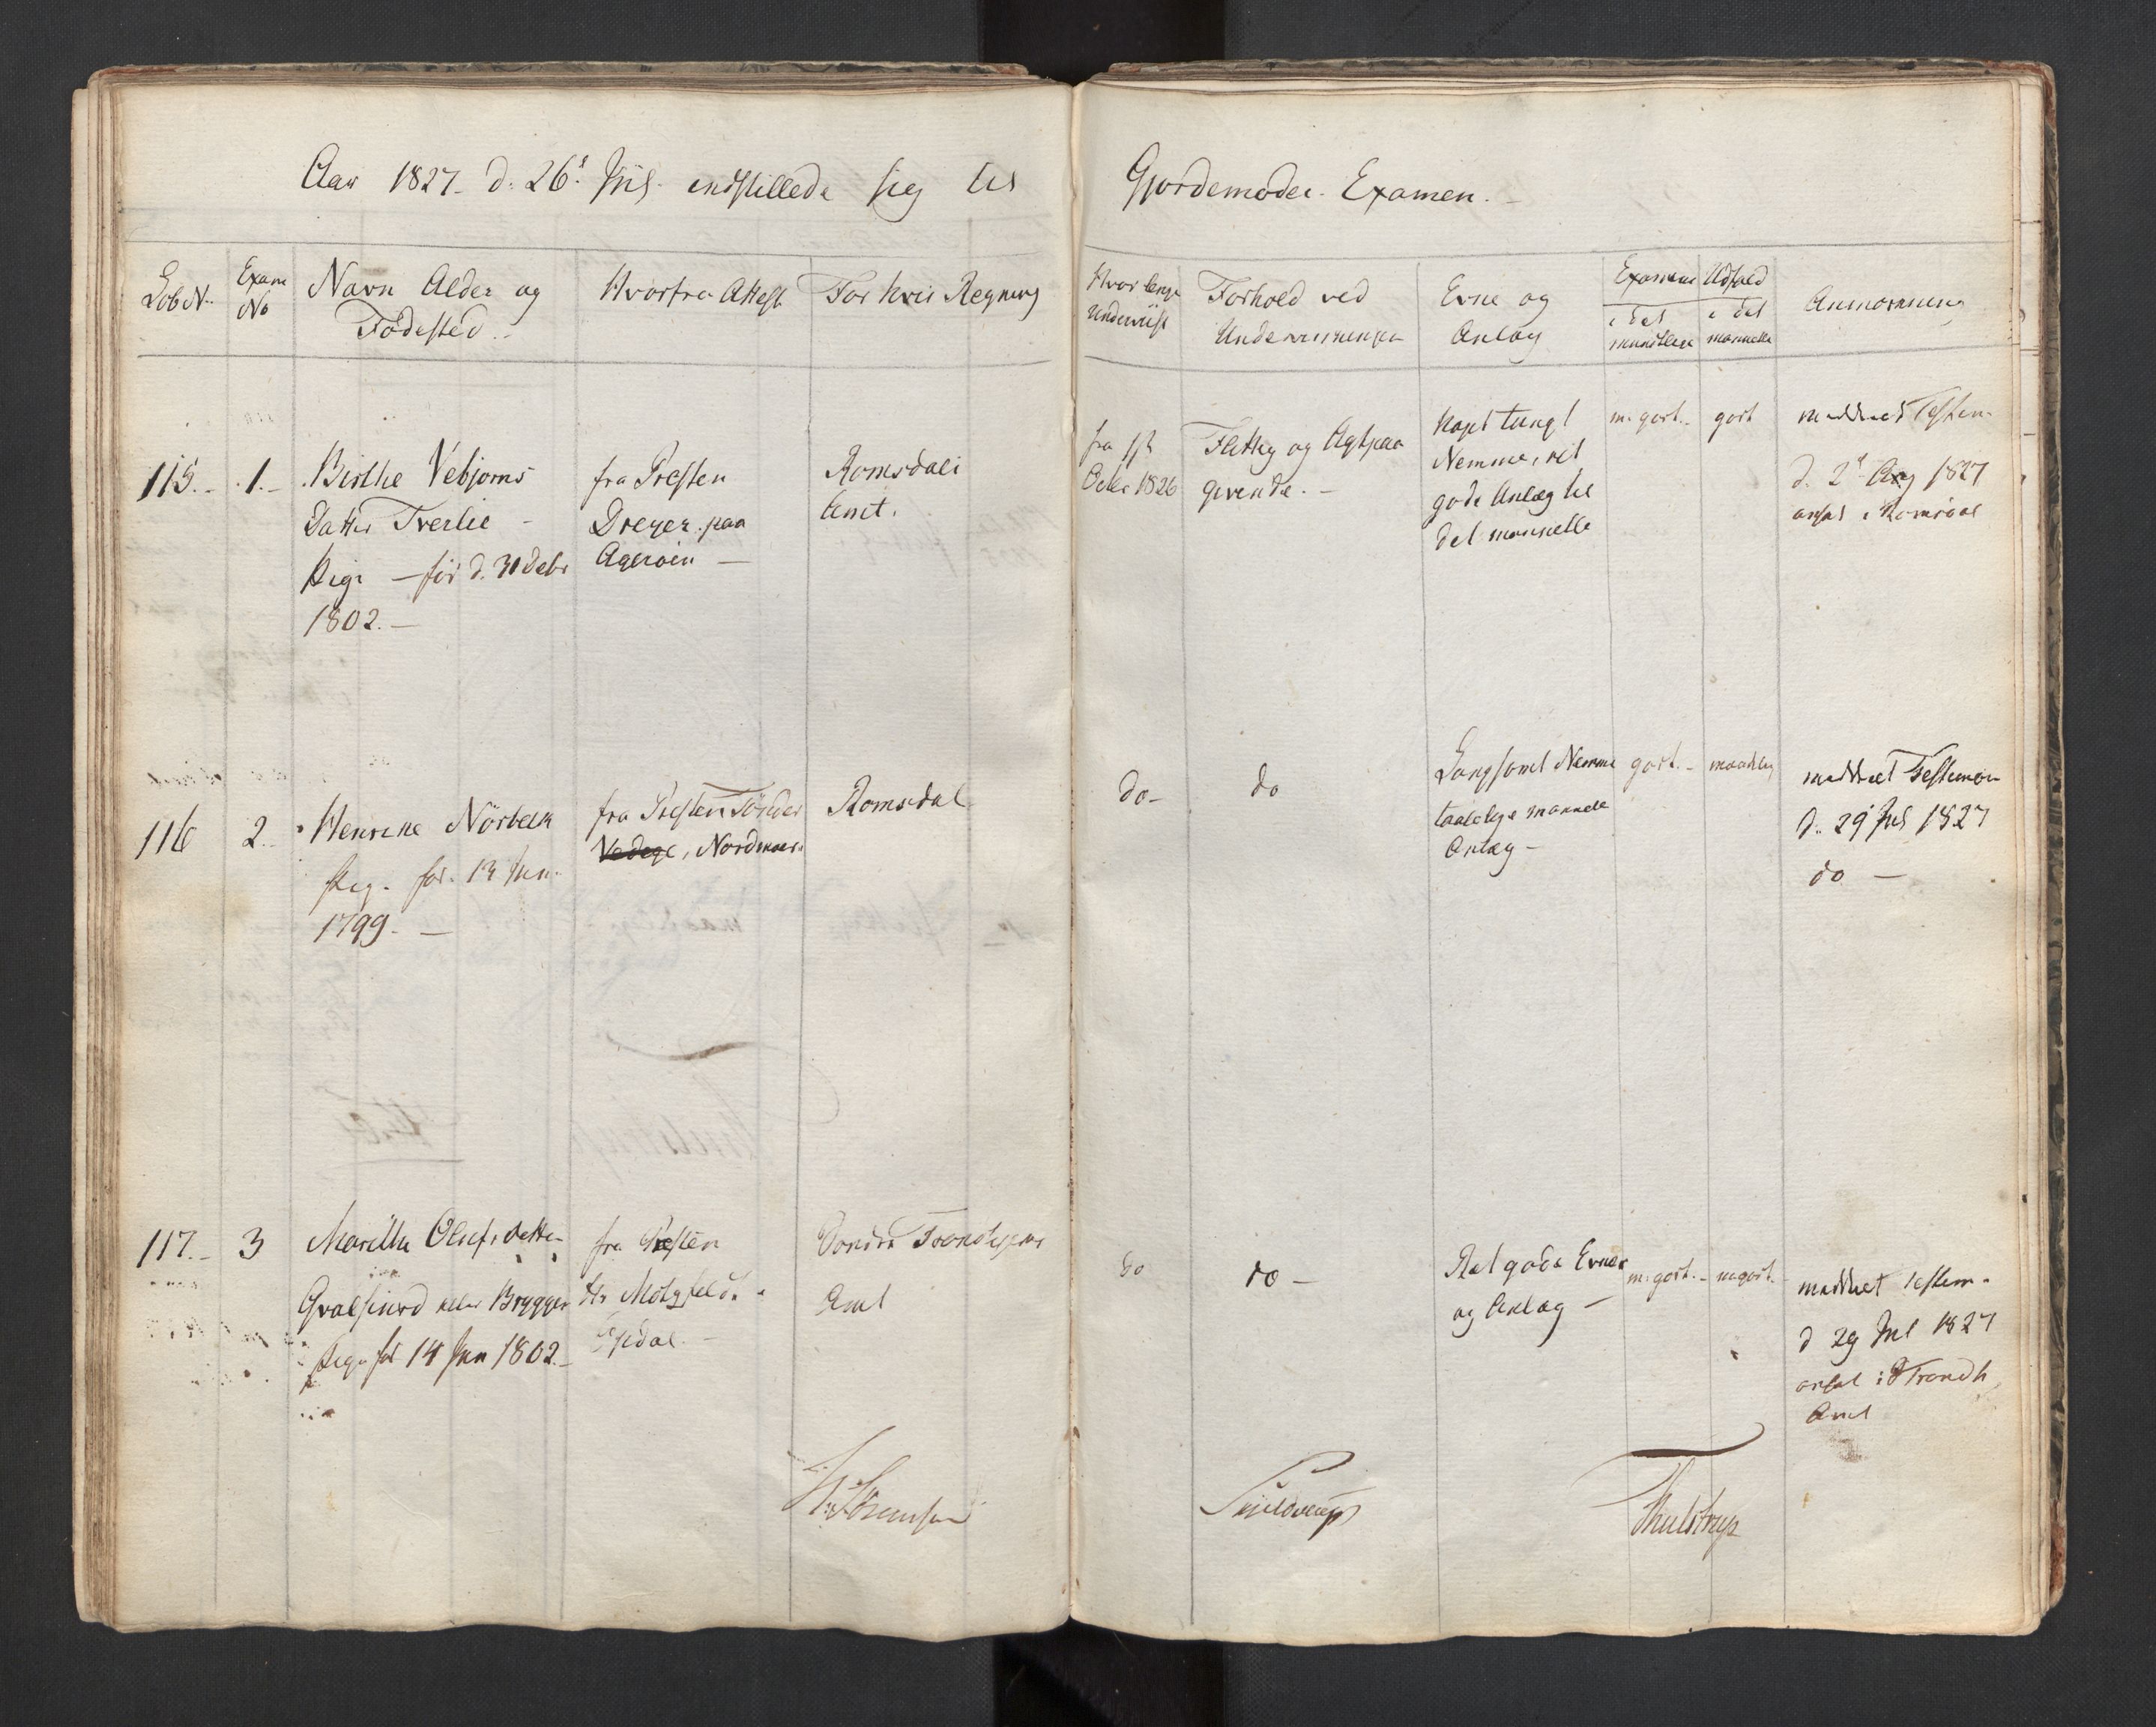 Aar 1827 d: 26. Juli indstillede sig til Gjordemoder Examen.
Løb N.
Exam No
Navn Alder og
Fødested.
Hvorfra Attest
For hvis Regning
Hvor længe
Underviist
Forhold ved
Underviisningen
Evne og
Anlæg
Examens Udfald
i det
mundtlige
i det
manuelle
Anmærkning
115. 1. Birthe Vebjørns
Datter Tverlie -
Pige - før d. 31 Debr
1802. -
fra Præsten
Dreyer paa
Agerøen -
Romsdals
Amt.
fra 1st
Octbr 1826
Flittig og Agtpaa
givende. -
Noget tungt
Nemme, ret
gode Anlæg til
det manuelle
m. godt. -
godt
meddeelt Testim.
d. 2d Aug 1827
ansat i Romsdal
116 2. Henrike Nörbech
Pig. fød. 13 Jun.
1799. -
fra Præsten Tönder
Nordmør.
Romsdal
do -
do
Langsomt Nemme
taalelige manuelle
Anlæg -
godt. -
maadelig
meddeelt Testimon
d. 29 Jul 1827
do -
117. - 3 Marithe Olufsdatter
eller Brygger
Pige fød 14 Jun 1802. -
fra Præsten
Hr Motzfeldt
Opdal -
Søndre Trondhjems
Amt
do
do -
Ret gode Evner
og Anlæg -
m. godt. -
m. godt. -
meddeelt Testim.
d 29 Jul 1827
ansat i S Trondh
Amt
Skjelderup
Thulstrup